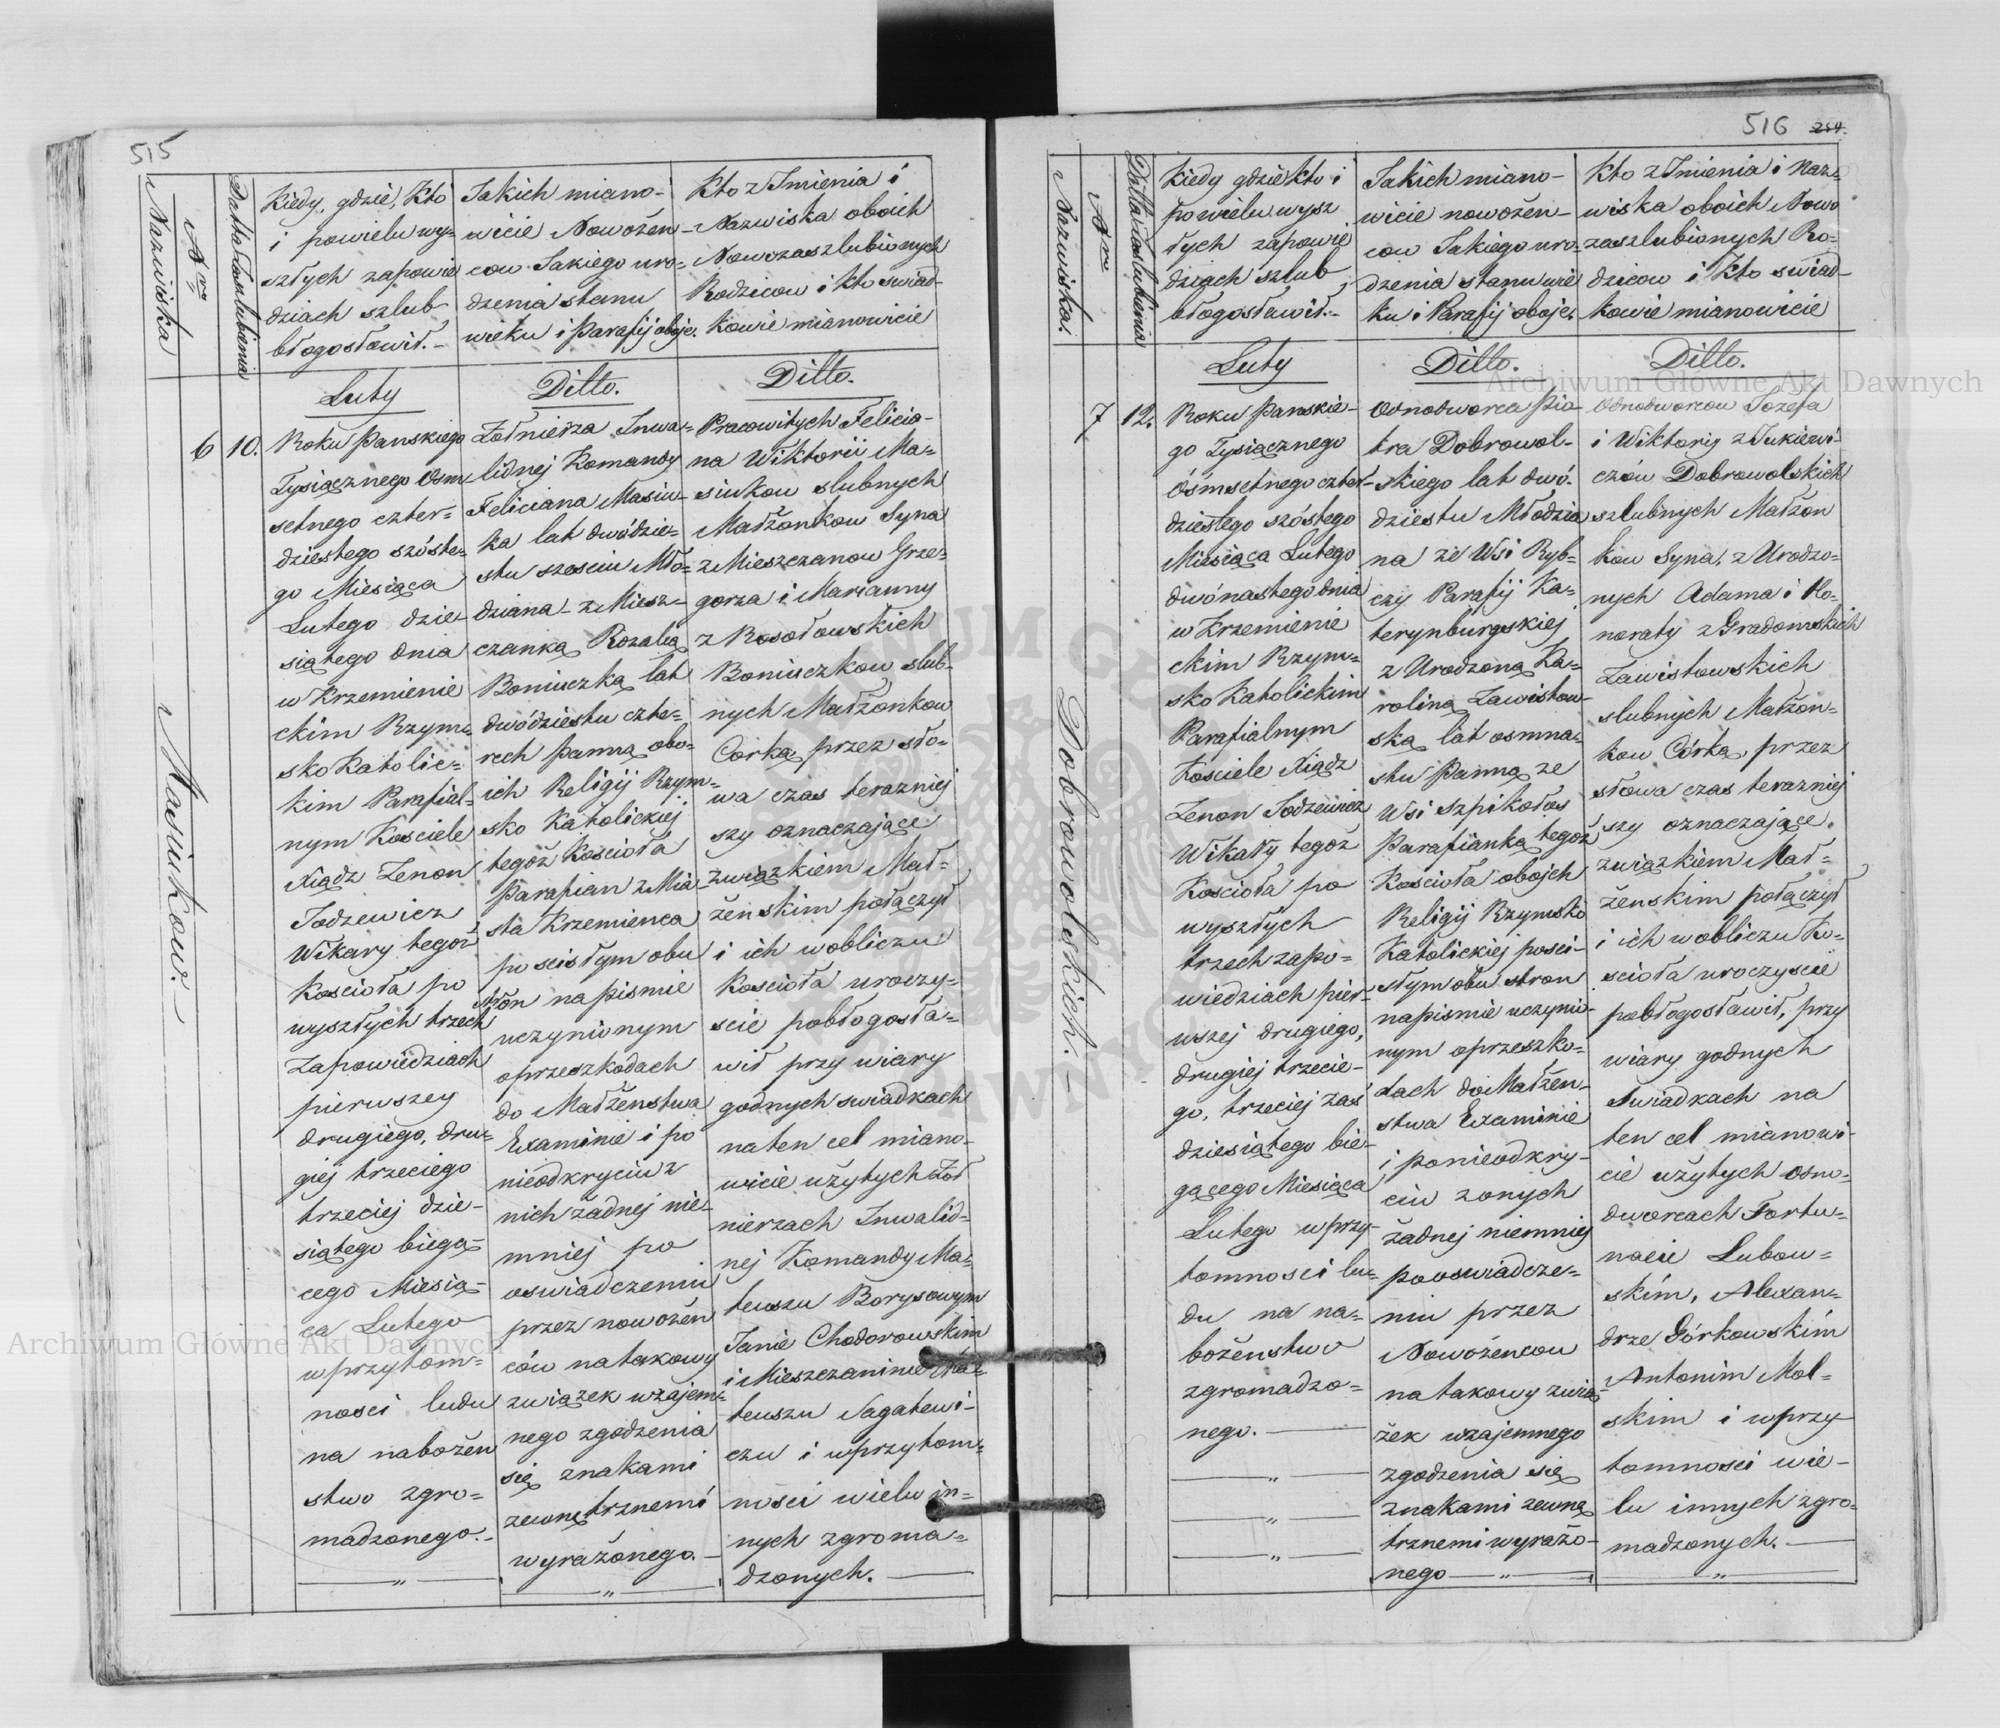 515
Nazwiska
Nro
Datta Zaszlubienia
Kiedy, gdzie, Kto
i powielu wy-
szłych zapowie
dziach szlub
błogosłowił.-
Jakich miano-
wicie Nowożen-
cow Jakiego uro-
dzenia stanu
wieku i Parafij oboje.
Kto z Imienia i
Nazwiska oboich
Nowozaszlubionych
Rodzicow i Kto swiad-
kowie mianowicie
Masiukow.
6
10.
Luty
Roku Panskiego
Tysiącznego Osm
setnego czter-
dziestego szóste-
go Miesiąca
Lutego dzie-
siątego dnia
w Krzemienie
ckim Rzym-
sko Katolic-
kim Parafial-
nym Kosciele
Xiądz Zenon
Jodzewicz
Wikary tegoż
Kościoła po
wyszłych trzech
Zapowiedziach
pierwszey
drugiego, dru-
giej trzeciego
trzeciej dzie-
siątego biegą-
cego Miesią-
ca Lutego
w przytom-
nosci ludu
na nabożen
stwo zgro-
madzonego.-
Ditto.
Żołnierza Inwa-
lidnej Komandy
Feliciana Masiu-
ka lat dwódzie-
stu szesciu Mło-
dziana z Miesz-
czanką Rozalią
Boniuczką lat
dwódziestu czte-
rech Panną obo-
ich Religij Rzym-
sko Katolickiej
tegoż Kościoła
Parafian z Mia-
sta Krzemienca
po scisłym obu
stron na pismie
uczynionym
oprzeszkodach
do Małżeństwa
Examinie i po
nieodkryciu z
nich żadnej nie-
mniej po
oswiadczeniu
przez nowożen
ców na takowy
związek wzajem-
nego zgodzenia
się znakami
zewnętrznemi
wyrażonego.-
Ditto.
Pracowitych Felicia-
na Wiktorii Ma-
siukow slubnych
Małżonkow Syna
z Mieszczanow Grze-
gorza i Marianny
z Rosołowskich
Boniuczkow slub-
nych Małżonkow
Corką, przez sło-
wa czas terazniej
szy oznaczające
Związkiem Mał-
żeńskim połączył
i ich wobliczu
Kościoła uroczy-
scie pobłogosła-
wił przy wiary
godnych swiadkach
na ten cel miano-
wicie użytych Żoł
nierzach Inwalid-
nej Komandy Ma-
teuszu Borysowym
Janie Chodorowskim
i Mieszczaninie Ma-
teuszu Sagatewi-
czu i wprzytom-
nosci wielu in-
nych zgroma-
dzonych.
516
Nazwiska.
Nro
Datta Zaslubienia
Kiedy gdzie kto i
powielu wysz
łych zapowie
dziach szlub
błogosławił.-
Jakich miano-
wicie nowożen-
cow Jakiego uro-
dzenia stanu wie
ku i Parafij oboje.
Kto z Imienia i Naz-
wiska oboich Nowo
zaszlubionych Ro-
dzicow i Kto swiad-
kowie mianowicie
Dobrowolskich.-
7
12.
Luty
Roku Panskie-
go Tysiącznego
Ósmsetnego czter-
dziestego szóstego
Miesiąca Lutego
dwónastego dnia
w Krzemienie
ckim Rzym-
sko Katolickim
Parafialnym
Kosciele Xiądz
Zenon Jodzewicz
Wikary tegoż
Kościoła po
wyszłych
trzech zapo-
wiedziach pier-
wszej drugiego,
drugiej trzecie-
go, trzeciej zaś
dziesiątego bie-
gącego Miesiąca
Lutego wprzy-
tomnosci lu-
du na na-
bożeństwo
zgromadzo-
nego.
Ditto.
Odnodworca Pio-
tra Dobrowol-
skiego lat dwó-
dziestu Młodzia
na ze Wsi Ryb-
czy Parafij Ka-
terynburgskiej
z Urodzoną Ka-
roliną Zawistow-
ską lat osmna-
stu Panną ze
Wsi Szpikołos
Parafianką tegoż
Kościoła obojch
Religij Rzymsko
Katolickiej posci-
słym obu stron
napismie uczynio-
nym oprzeszko-
dach do Małżen-
stwa Examinie
i ponieodkry-
ciu zonych
żadnej niemniej
pooswiadcze-
niu przez
Nowożencow
na takowy zwią-
żek wzajemnego
zgodzenia się
znakami zewnę
trznemi wyrażo-
nego
Ditto.
Odnodworcow Jozefa
i Wiktorij z Łukiewi-
czów Dobrowolskich
szlubnych Małżon
kow Syna, z Urodzo-
nych Adama i Ho-
noraty z Gradomskich
Zawistowskich
slubnych Małżon-
kow Córką, przez
słowa czas terazniej
szy oznaczające
związkiem Mał-
żenskim połączył
i ich w obliczu Ko-
scioła uroczyscie
pobłogosławił, przy
wiary godnych
Swiadkach na
ten cel mianowi-
cie użytych Odno-
dworcach Fortu-
nacie Lubow-
skim, Alexan-
drze Górkowskim
Antonim Mol-
skim i wprzy
tomnosci wie-
lu innych zgro-
madzonych.
Archiwum Główne Akt Dawnych
Archiwum Główne Akt Dawnych